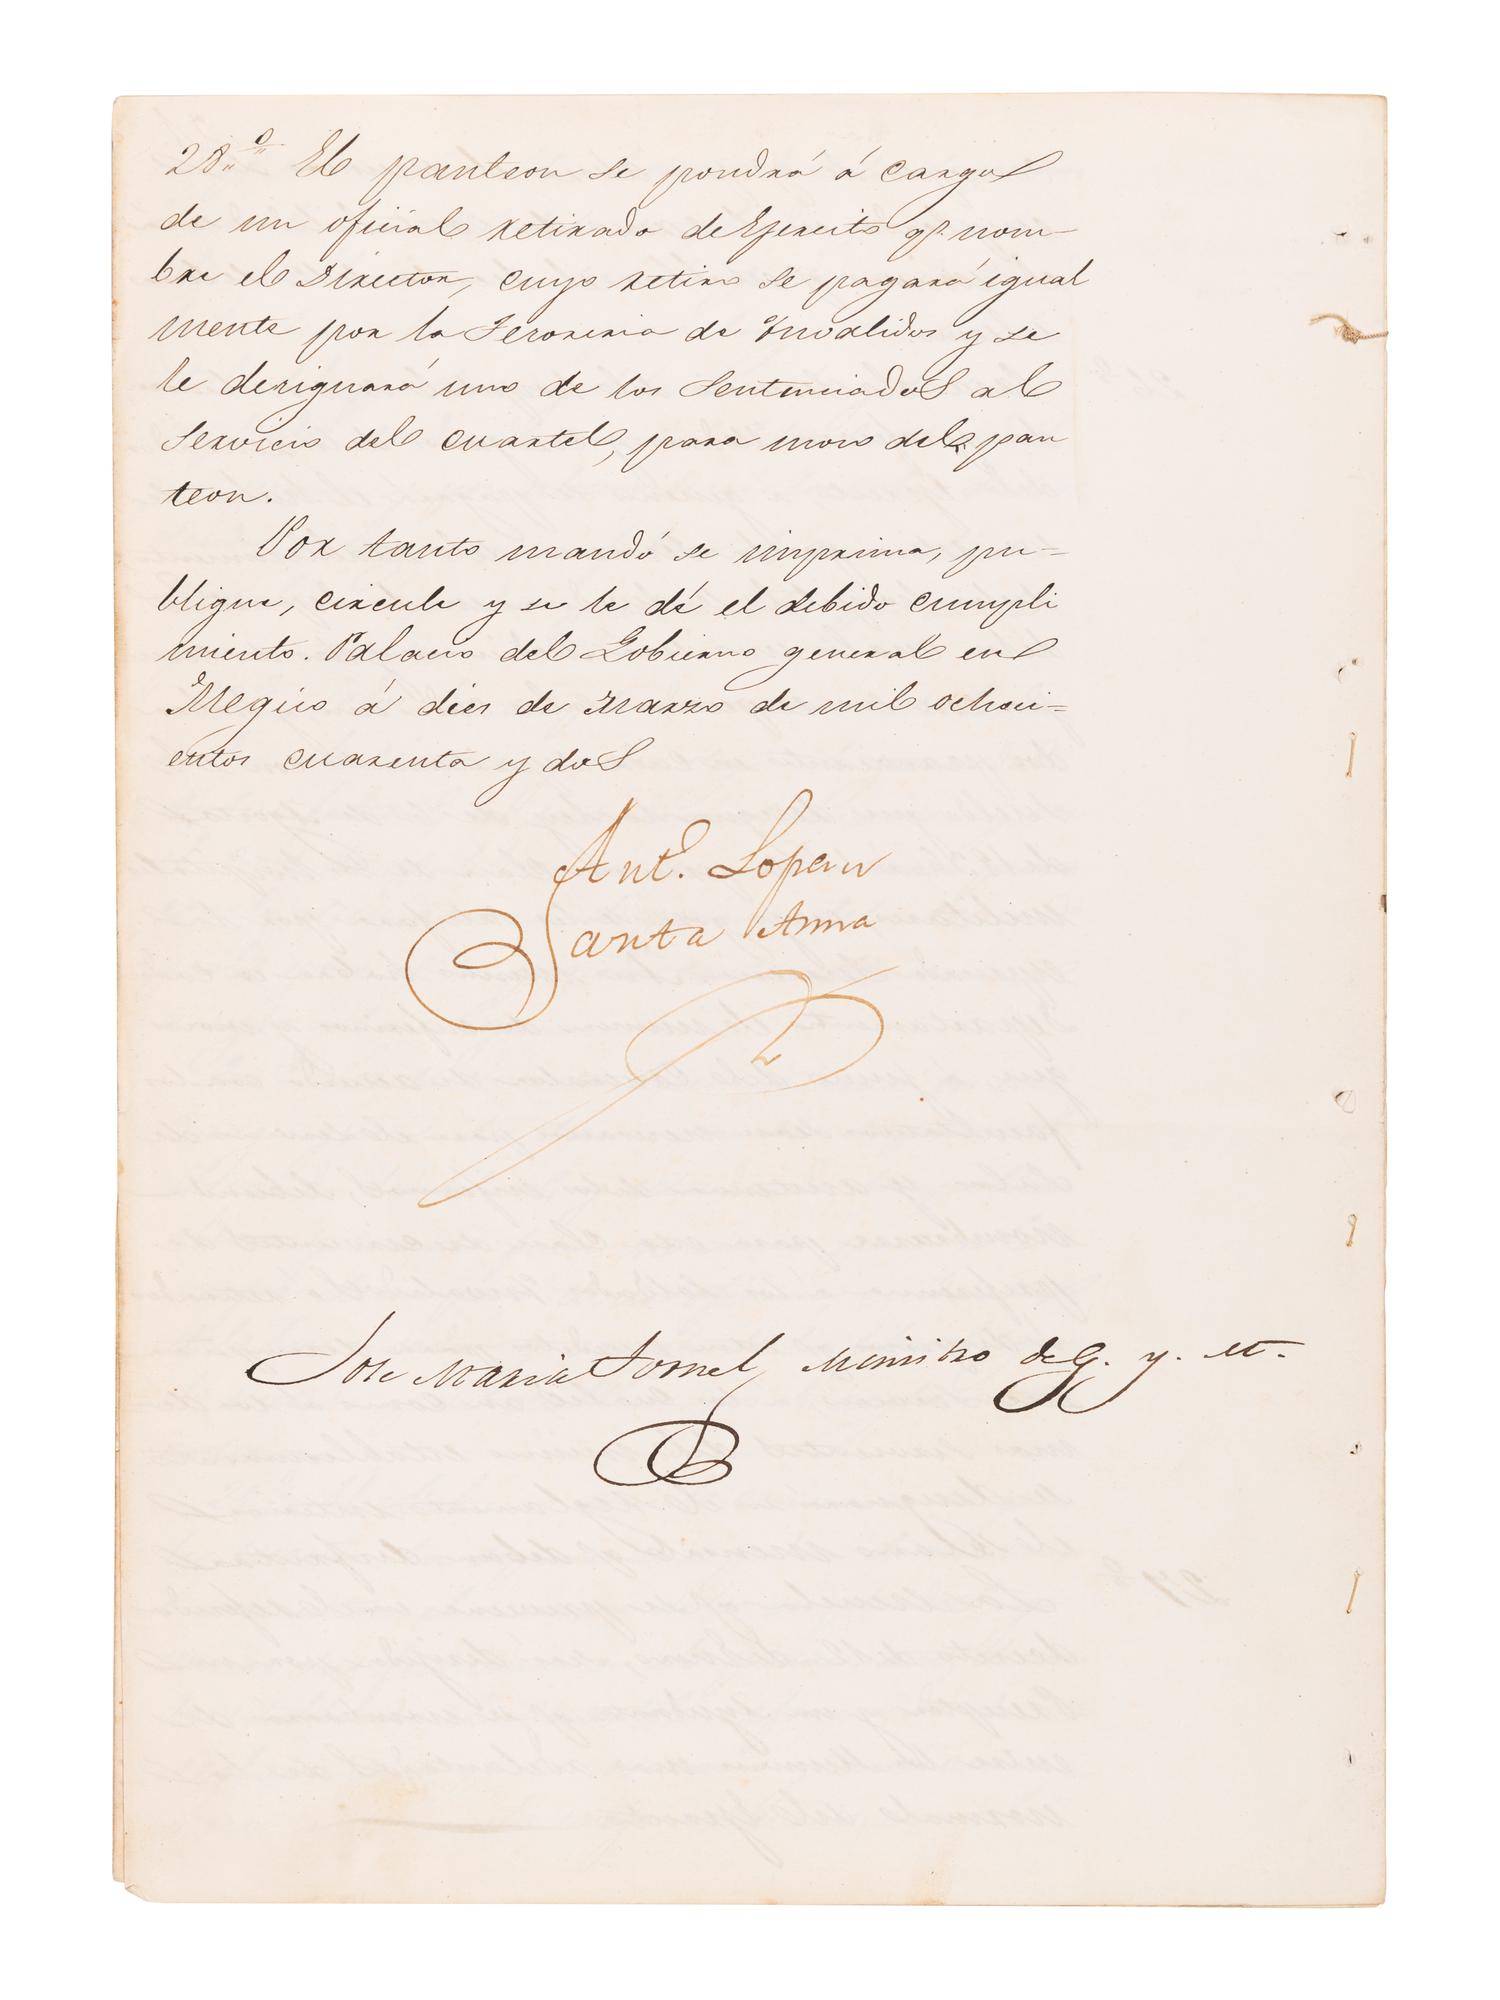 28.º El panteon se pondrá á cargo
de un oficial retirado de Ejercito qe. nom-
bre el Director, cuyo retiro se pagará igual
mente por la Tesoreria de Invalidos y se
le designará uno de los Sentenciados al
servicio del cuartel, para mozo del pan
teon.
Por tanto mandó se imprima, pu-
blique, circule y se le dé el debido cumpli
miento. Palacio del Gobierno general en
Megico á diez de Marzo de mil ochoci-
entos cuarenta y dos
Anto. Lopez de
Santa Anna
Jose Maria Tornel, Ministro de G. y. M.